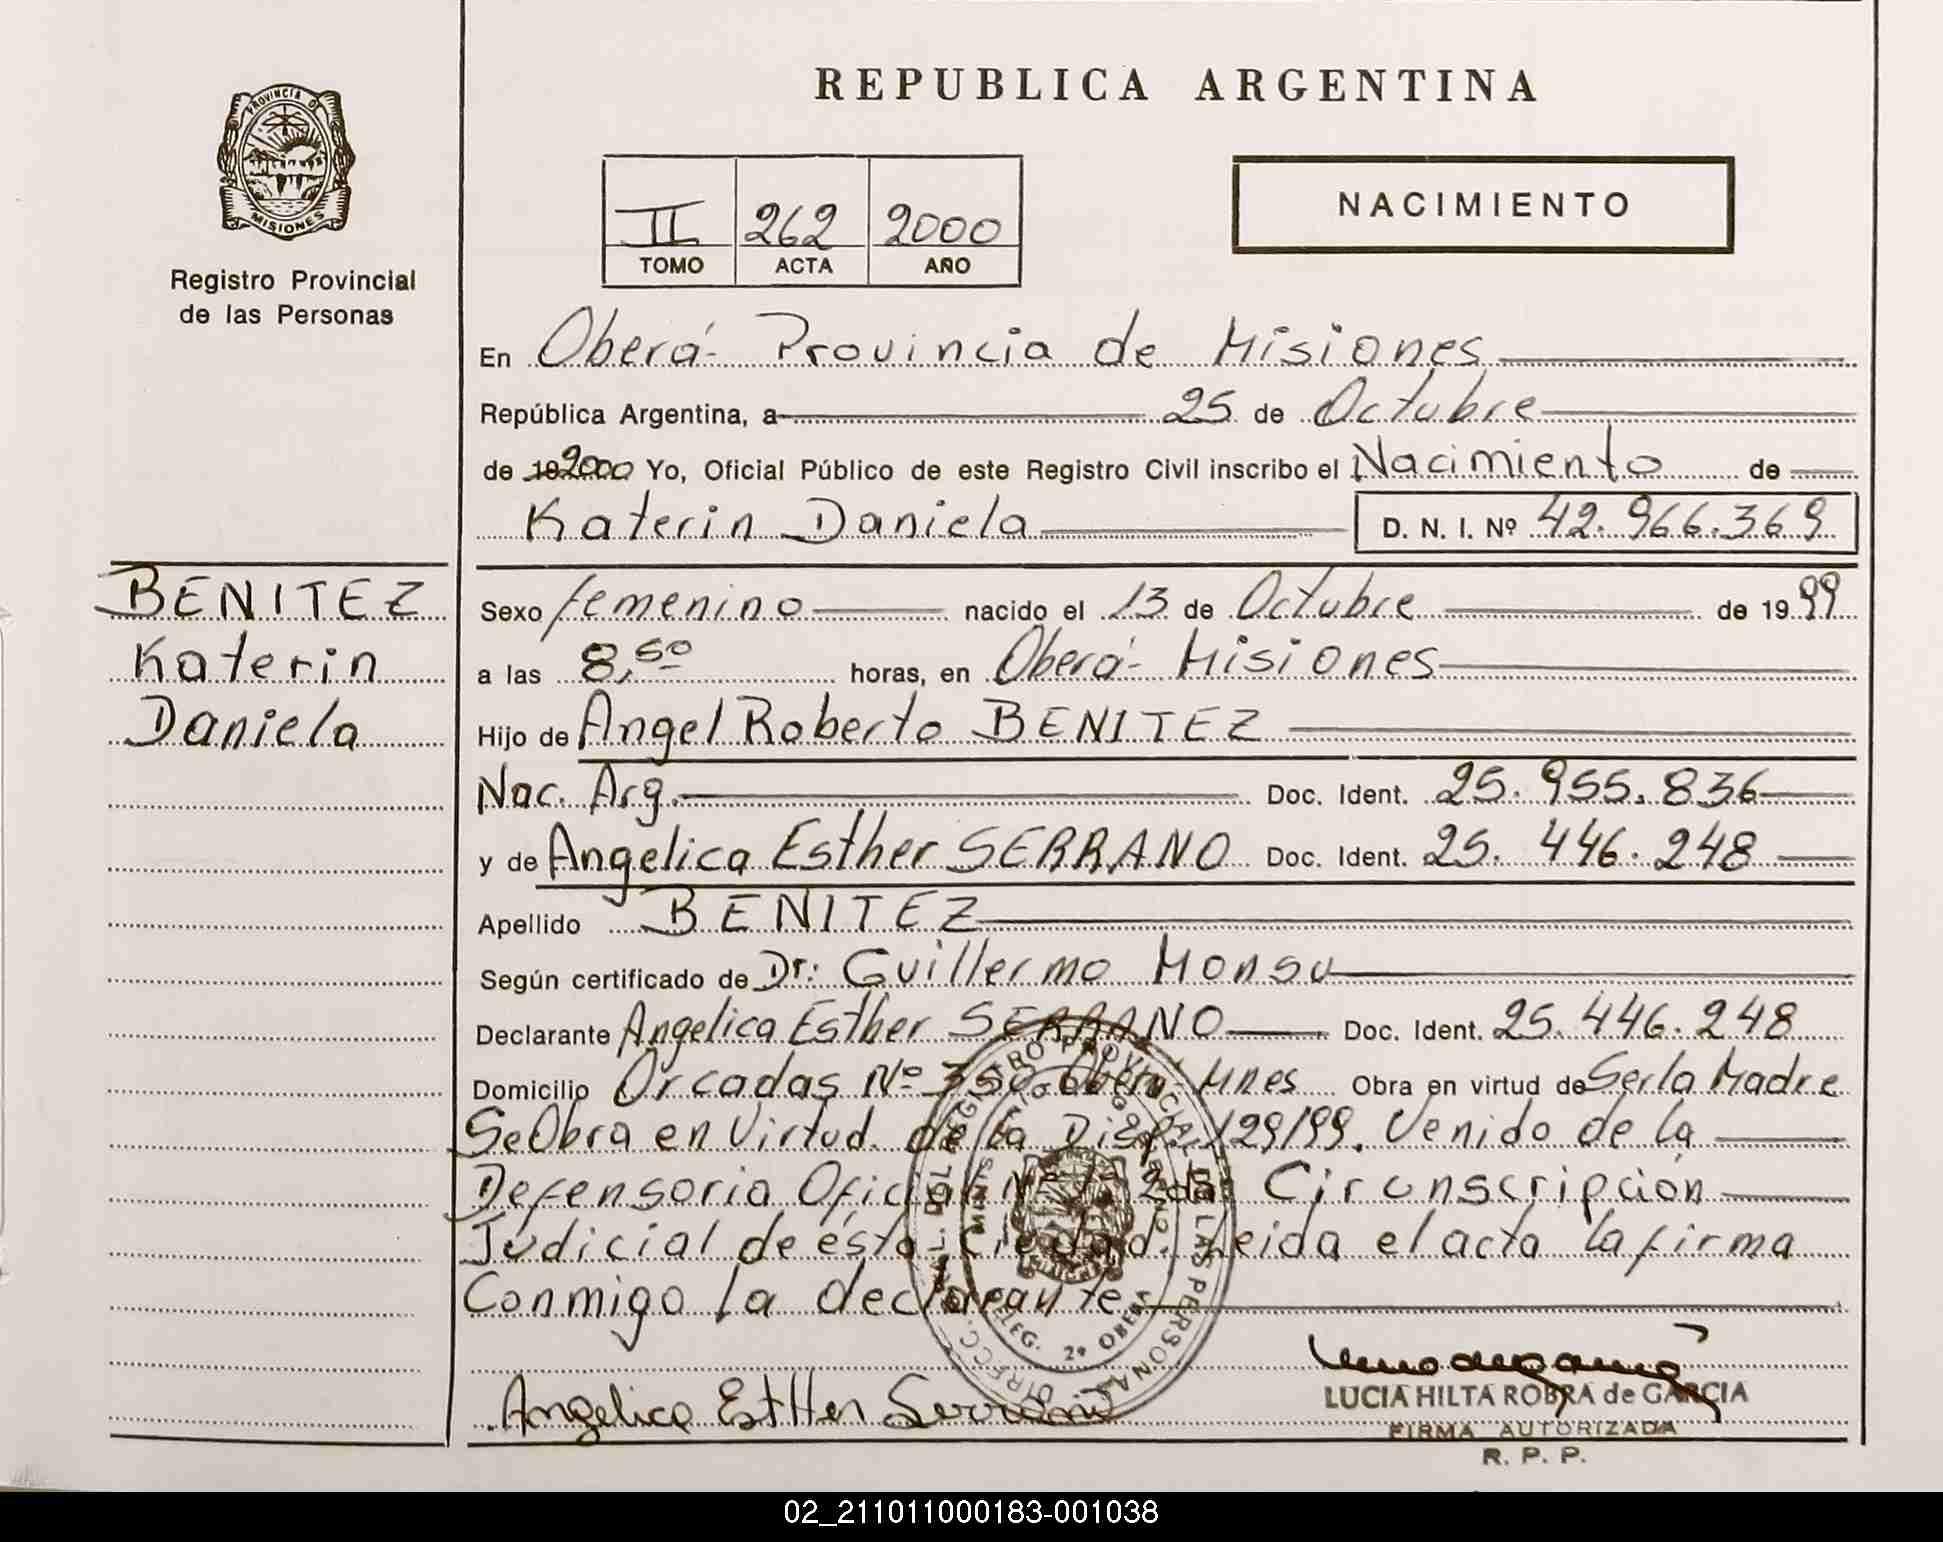 REPUBLICA ARGENTINA
PROVINCIA D
MISIONES
Registro Provincial
de las Personas
II 262 2000
TOMO ACTA AÑO
NACIMIENTO
En Oberá- Provincia de Misiones
República Argentina, a 25 de Octubre
de 19 2000 Yo, Oficial Público de este Registro Civil inscribo el Nacimiento de
Katerin Daniela D. N. I. Nº 42.966.369
BENITEZ
Katerin
Daniela
Sexo femenino nacido el 13 de Octubre de 1999
a las 8,50 horas, en Oberá- Misiones
Hijo de Angel Roberto BENITEZ
Nac. Arg. Doc. Ident. 25.955.836
y de Angelica Esther SERRANO Doc. Ident. 25.446.248
Apellido BENITEZ
Según certificado de Dr: Guillermo Monsu
Declarante Angelica Esther SERRANO Doc. Ident. 25.446.248
Domicilio Orcadas Nº Oberá- Mnes Obra en virtud de Ser la Madre
Se Obra en Virtud de la Disp. 129/99. Venido de la
Defensoria Oficial Nº 2da Circunscripción
Judicial de ésta Ciudad. Leida el acta la firma
Conmigo la declarante
DIRECC. DEL REGISTRO PROVINCIAL DE LAS PERSONAS
DELEG. 2ª OBERA
Angelica Esther Serrano
LUCIA HILTA ROBRA de GARCIA
FIRMA AUTORIZADA
R. P. P.
02_211011000183-001038